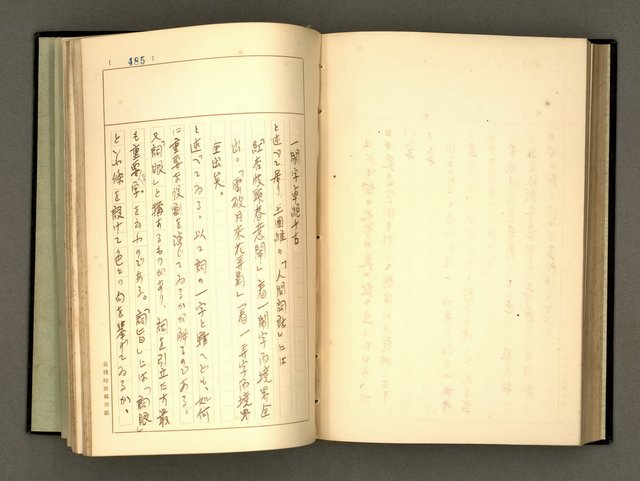 (485)
一鬧字卓絶千古
と述べて居り、王国維の「人間詞話」には
「紅杏枝頭春意鬧」著一鬧字而境界全
出。「雲破月来花弄影」著一弄字而境界
全出矣。
と述べてゐる。以て詞の一字と雖ども、如何
に重要な役割を演じてゐるかが解るのである。
又「詞眼」と稱するものがあり、詞を引立たす最
も重要な字を云ふのである。「詞旨」には「詞眼」
といふ條を設けて色々の句を挙げてゐるが、
黃得時原稿用紙